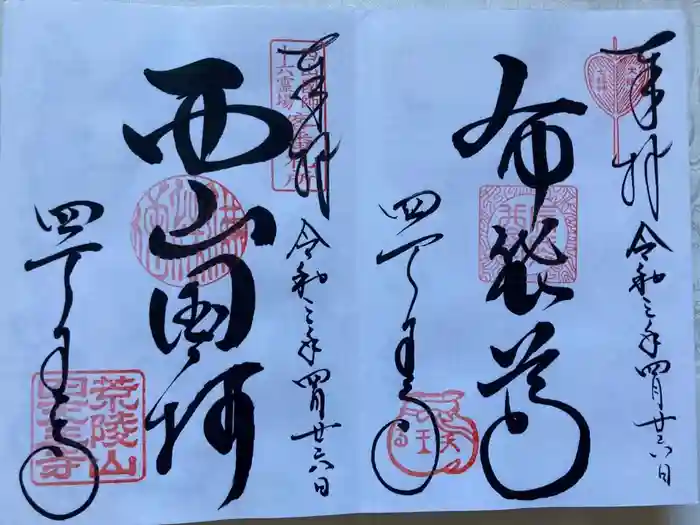 奉拝
令和三年四月廿六日
布袋尊
四天王寺
奉拝
西山国師
十六霊場
令和三年四月廿六日
西山国師
四天王寺
荒陵山
四天王寺